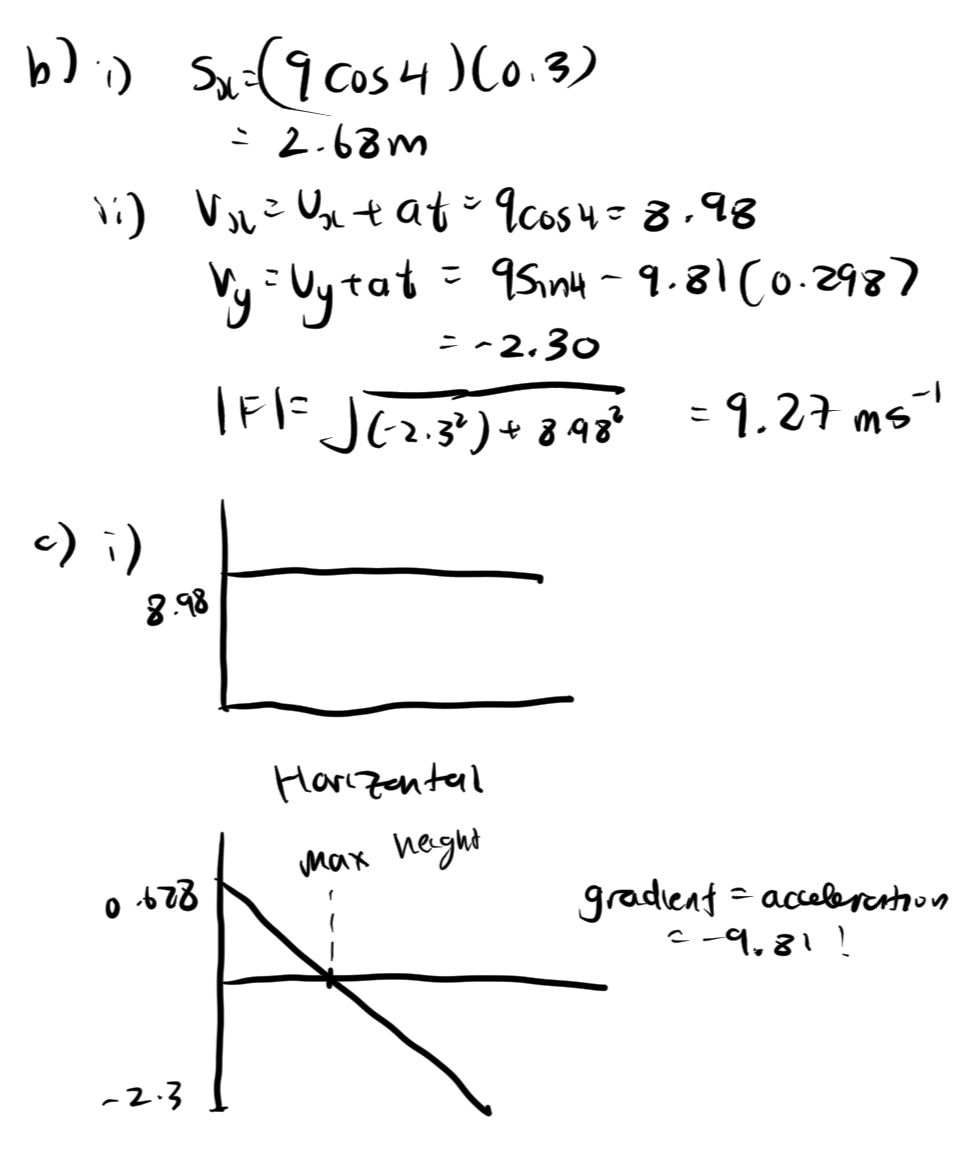 b) i) Sx=(9cos4)(0.3)
= 2.68m
ii) Vx = Ux + at = 9cos4 = 8.98
Vy = Uy + at = 9sin4 - 9.81(0.298)
= -2.30
|F| = √(-2.3²) + 8.98² = 9.27 ms⁻¹
c) i)
8.98
Horizontal
max height
0.628
gradient = acceleration
= -9.81!
-2.3